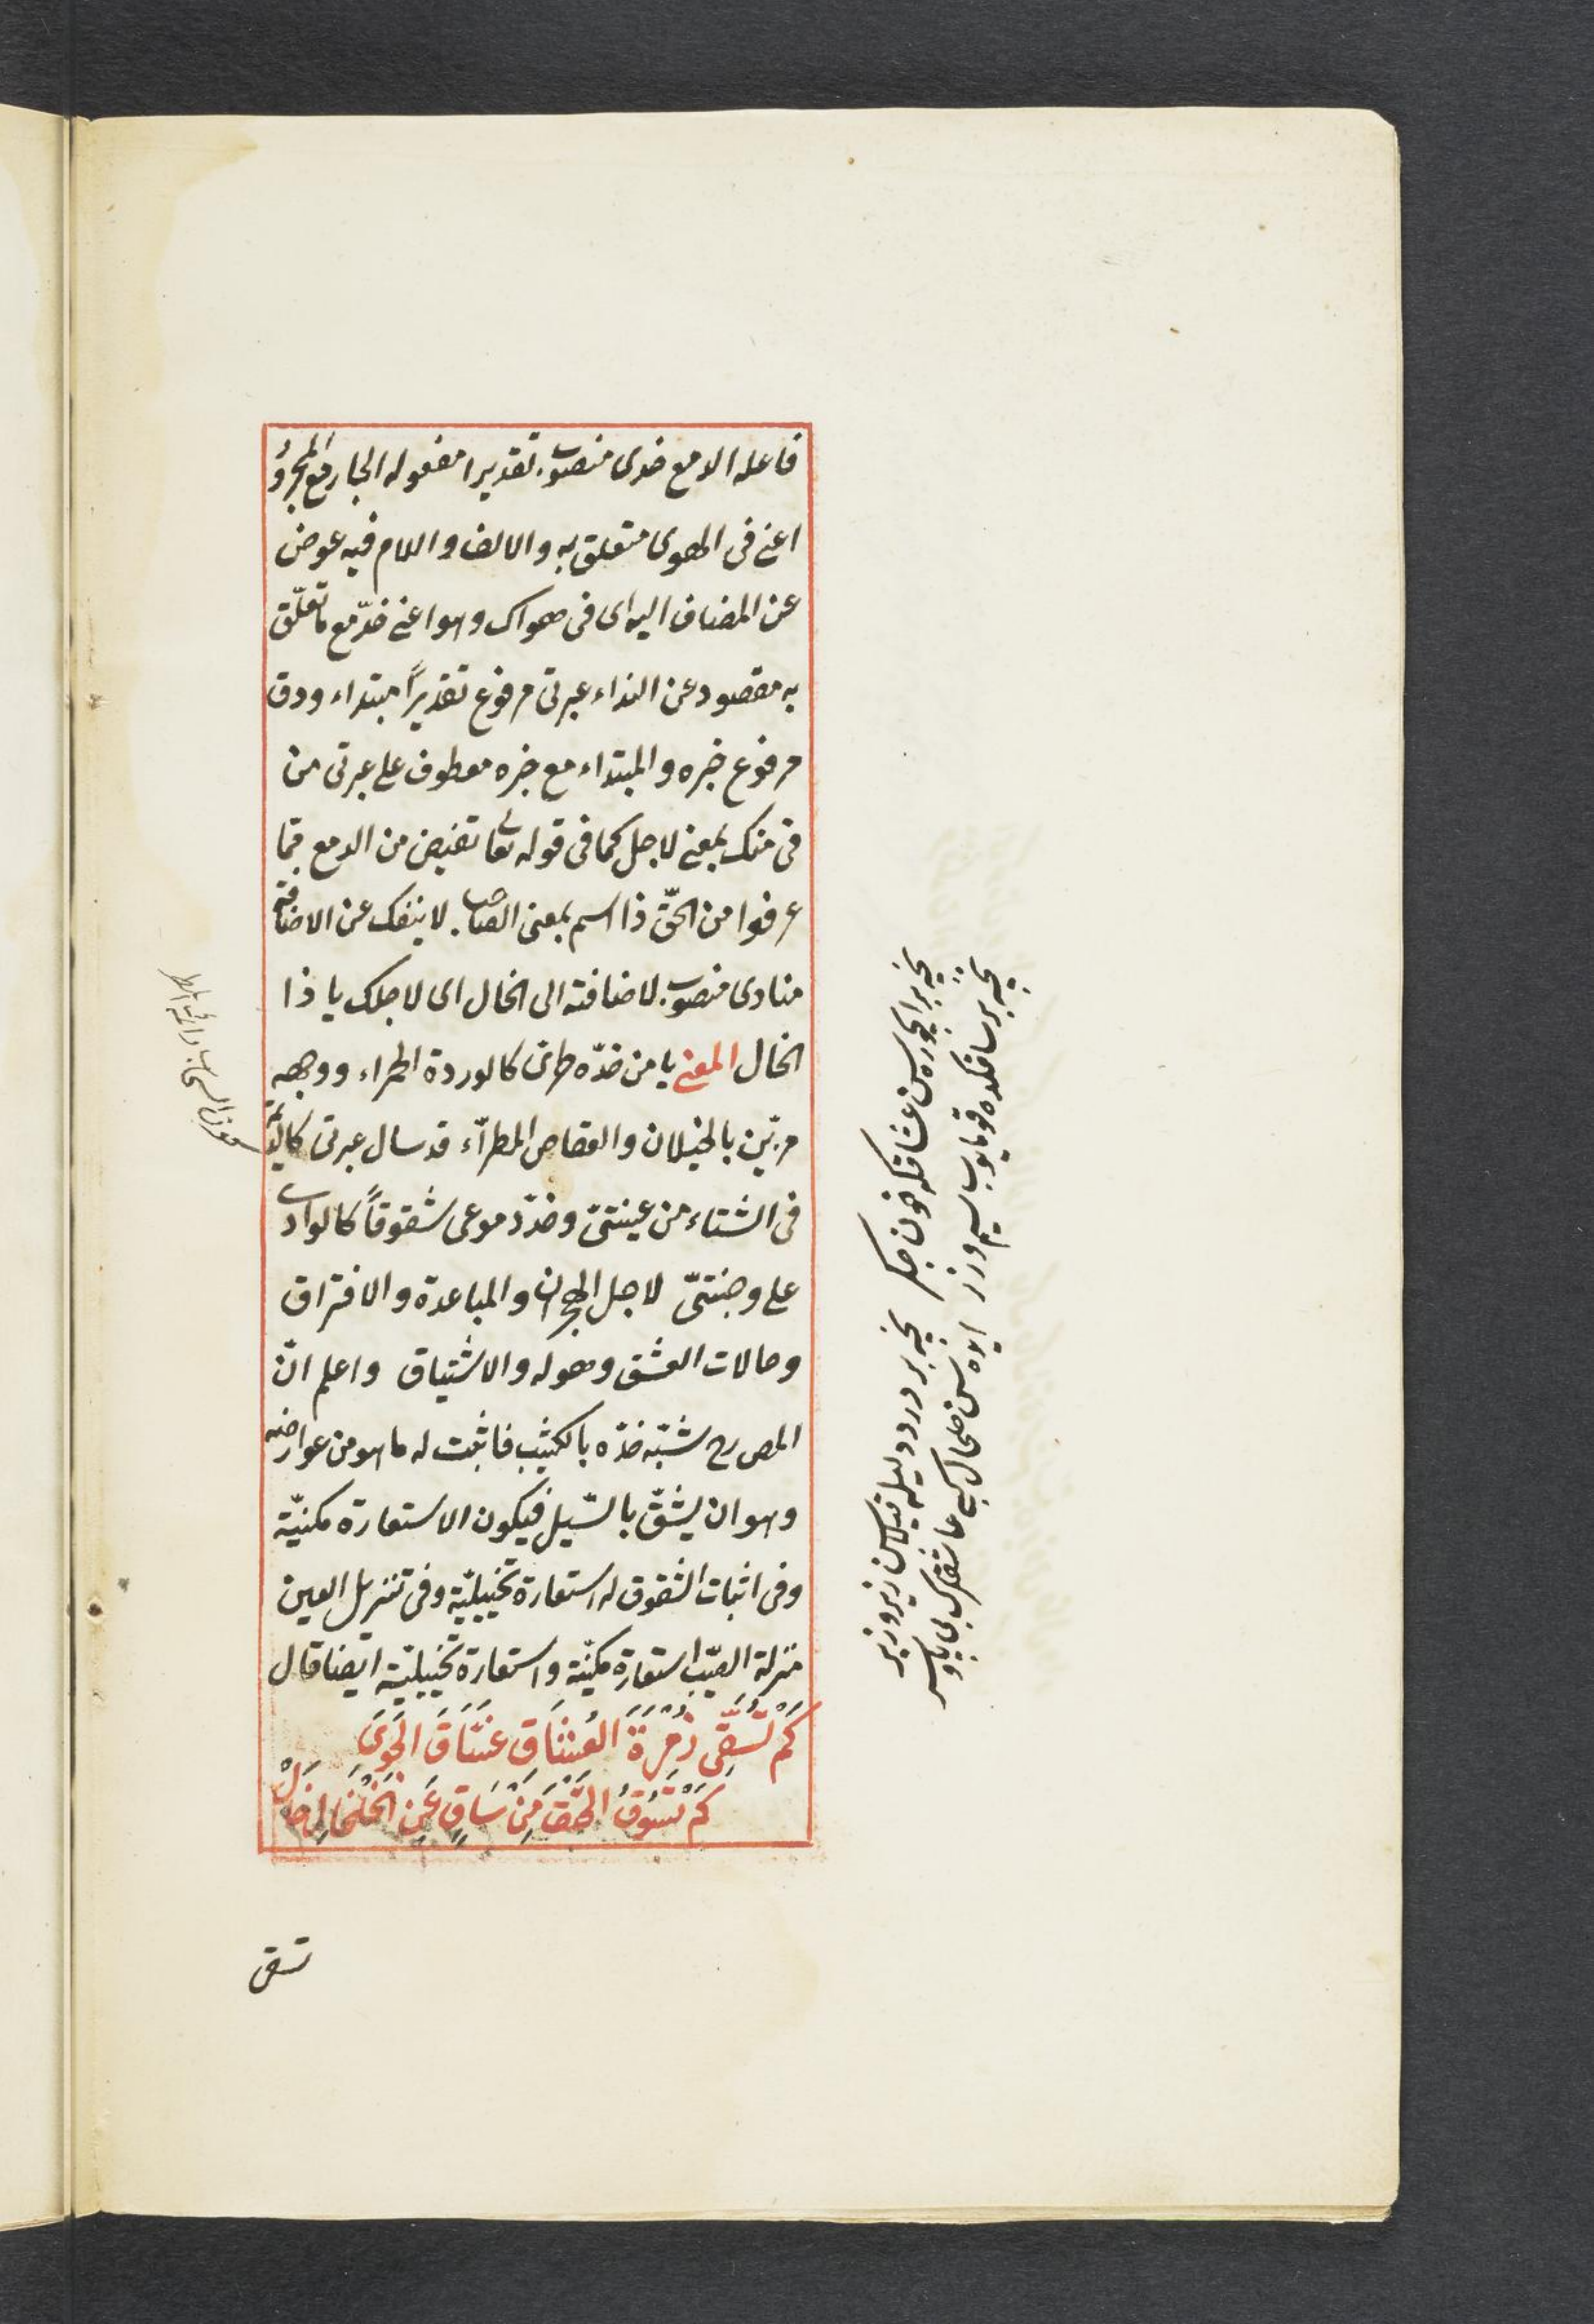 فاعله الدمع خدى منصوب تقديرا مفعوله الجار مع المجرور
اعنى فى الهوى متعلق به والالف واللام فيه عوض
عن المضاف اليه اى فى هواك وهو اعنى خدّ مع ما تعلّق
به مقصود عن النداء عبرتى مرفوع تقديرًا مبتداء ودق
مرفوع خبره والمبتداء مع خبره معطوف على عبرتى من
فى منك بمعنى لاجل كما فى قوله تعالى تفيض من الدمع مما
عرفوا من الحقّ ذا اسم بمعنى الصاحب لا ينفك عن الاضافة
منادى منصوب لاضافته الى الخال اى لاجلك يا ذا
الخال المعنى يا من خدّه كالوردة الحمراء ووجهه
مزيّن بالخيلان والمطرّاء قد سال عبرتى
فى الشتاء من عينتىّ وخدّد موعى شقوقاً كالوادى
على وجنتىّ لاجل الهجران والمباعدة والافتراق
وحالات العشق وهوله والاشتياق واعلم انّ
المصرح شبّه خدّه بالكثيب فاثبت له ما هو من عوارضه
وهو ان يشقّ بالسّيل فيكون الاستعارة مكنيّة
وفى اثبات الشقوق له استعارة تخييليّة وفى تنزيل العين
منزلة الصيّب استعارة مكنيّة واستعارة تخييليّة ايضا قال
كَمْ تُسَقِّى زُمْرَةَ العُشَّاقِ غَسَّاقَ الجَوَى
كَمْ تَسُوقُ مِنْ سَاقٍ عَنِ الخَلْخَالِ خَالْ
تسقى
نيجه بر سن عشاقكه خون جكر
نيجه بر درد زير وزبر
نيجه بر ساقكده قويوب سيم وزر
ايده سن خلخال